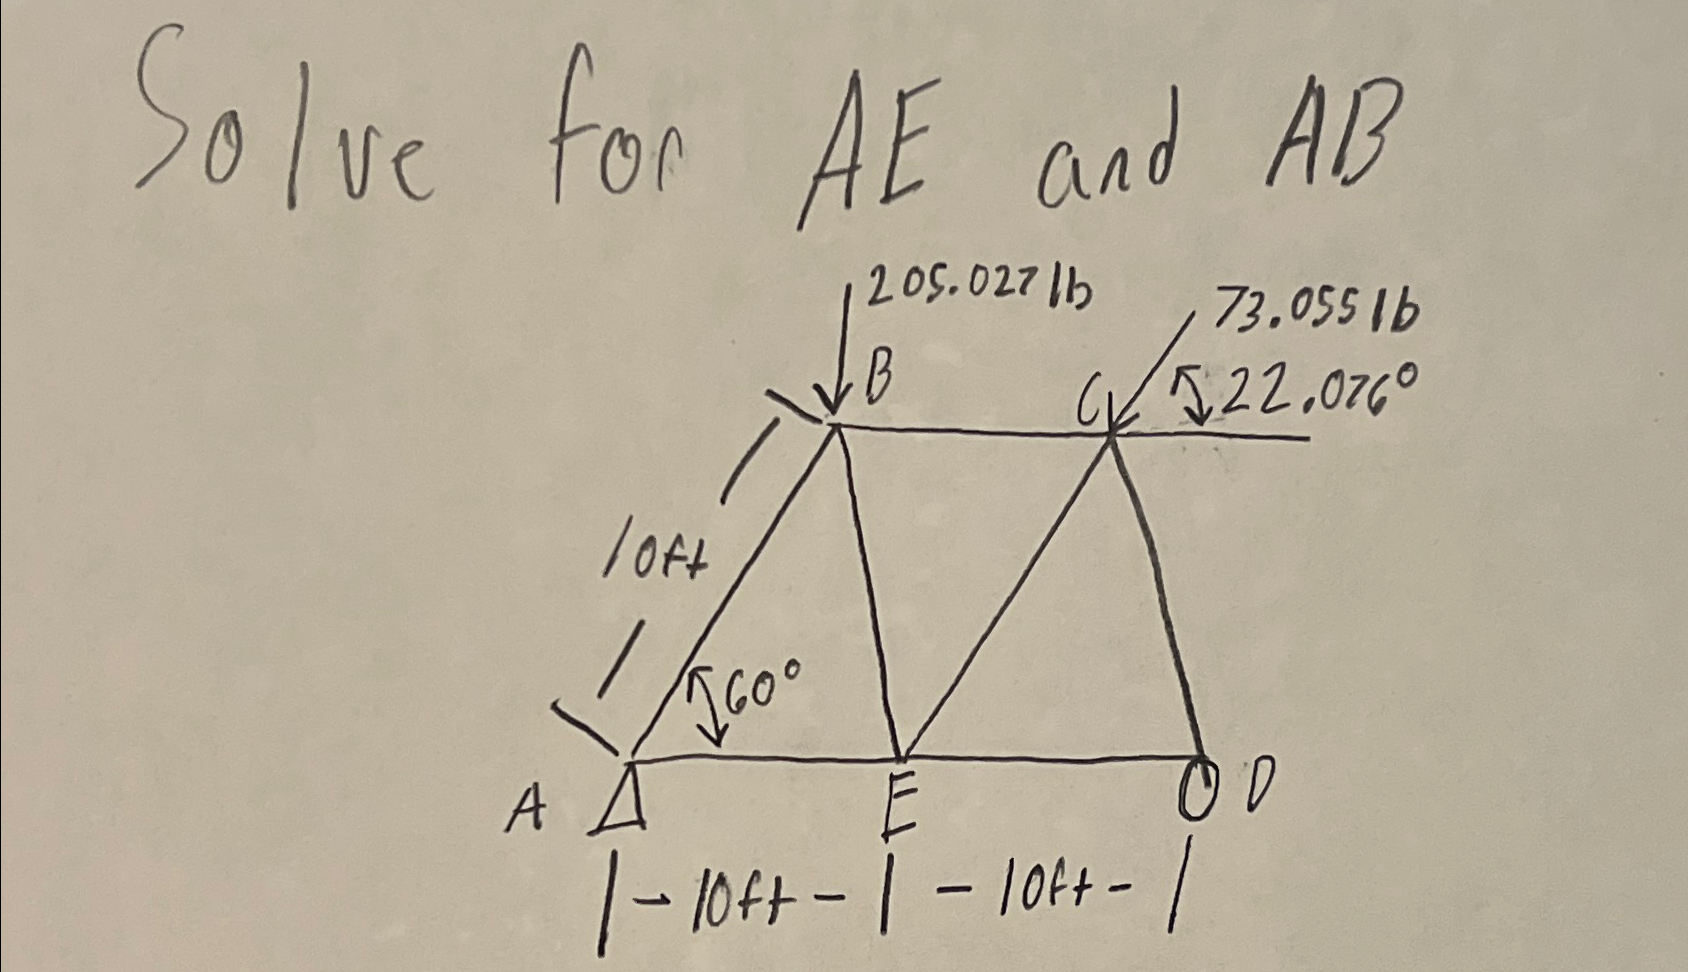 Solve for AE and AB
205.027 lb
73.055 lb
B
C
22.076°
10ft
60°
A
E
D
|- 10ft -| - 10ft - |